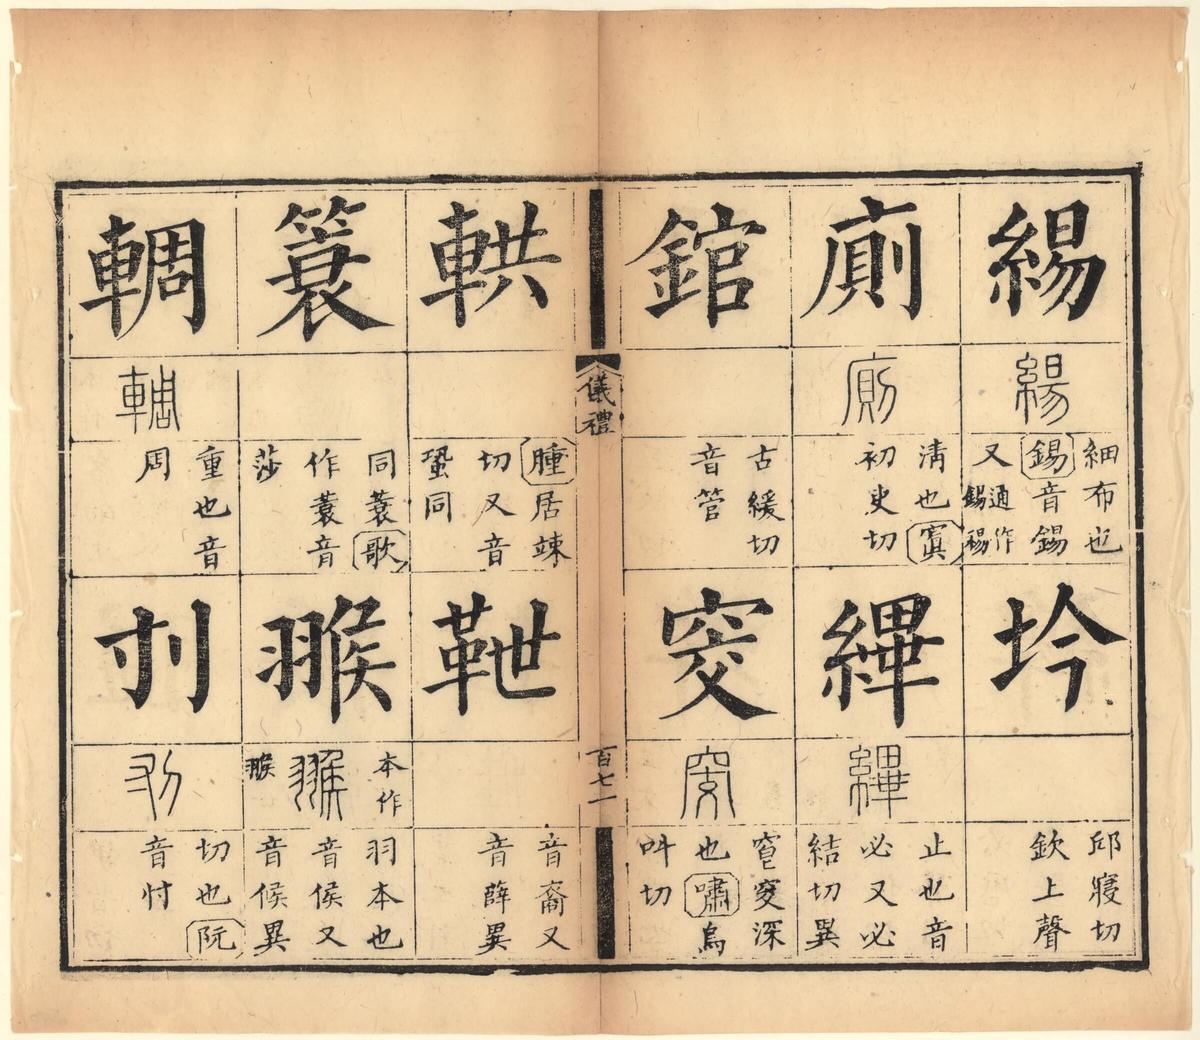 緆
緆
細布也
錫音錫
又通作錫裼
廁
廁
清也寘
初吏切
錧
古緩切
音管
坅
邱寢切
欽上聲
縪
縪
止也音
必又必
結切異
窔
窔
窔深
也嘯烏
叫切
儀禮
百七一
輁
腫居竦
切又音
蛩同
簑
同蓑歌
作蓑音
莎
輖
輖
重也音
周
靾
音裔又
音薛異
翭
本作
翭
翭
羽本也
音侯又
音候異
刌
刌
切也阮
音忖